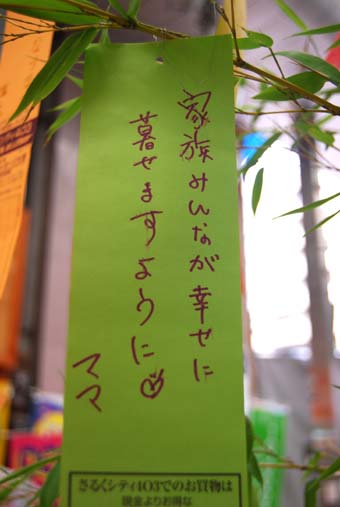 家族みんなが幸せに
暮せますように♡
ママ
さるくシティ403でのお買物は
現金よりお得な